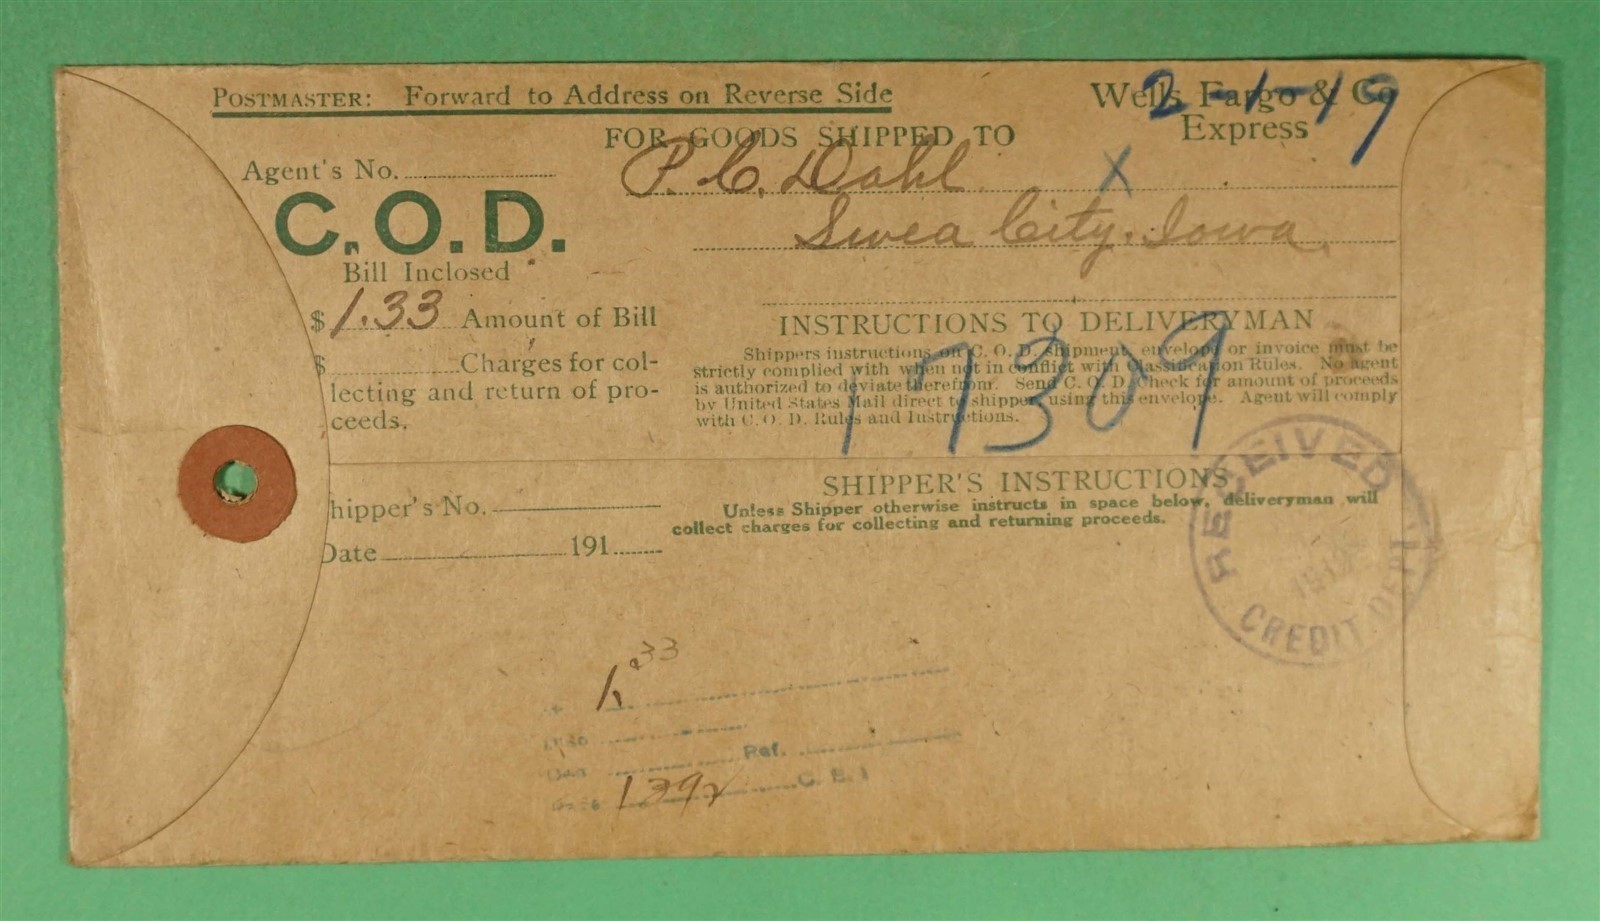 POSTMASTER: Forward to Address on Reverse Side
Wells Fargo & Co
Express
2-1-19
FOR GOODS SHIPPED TO
P. C. Dahl X
Swea City, Iowa.
Agent's No.
C.O.D.
Bill Inclosed
$ 1.33 Amount of Bill
$ Charges for col-
lecting and return of pro-
ceeds.
INSTRUCTIONS TO DELIVERYMAN
Shippers instructions on C. O. D. shipment, envelope or invoice must be
strictly complied with when not in conflict with Classification Rules. No agent
is authorized to deviate therefrom. Send C. O. D. Check for amount of proceeds
by United States Mail direct to shipper using this envelope. Agent will comply
with C. O. D. Rules and Instructions.
17309
hipper's No.
Date 191
SHIPPER'S INSTRUCTIONS
Unless Shipper otherwise instructs in space below, deliveryman will
collect charges for collecting and returning proceeds.
RECEIVED
CREDIT DEPT
1.33
Ref.
Date 139 C. B.